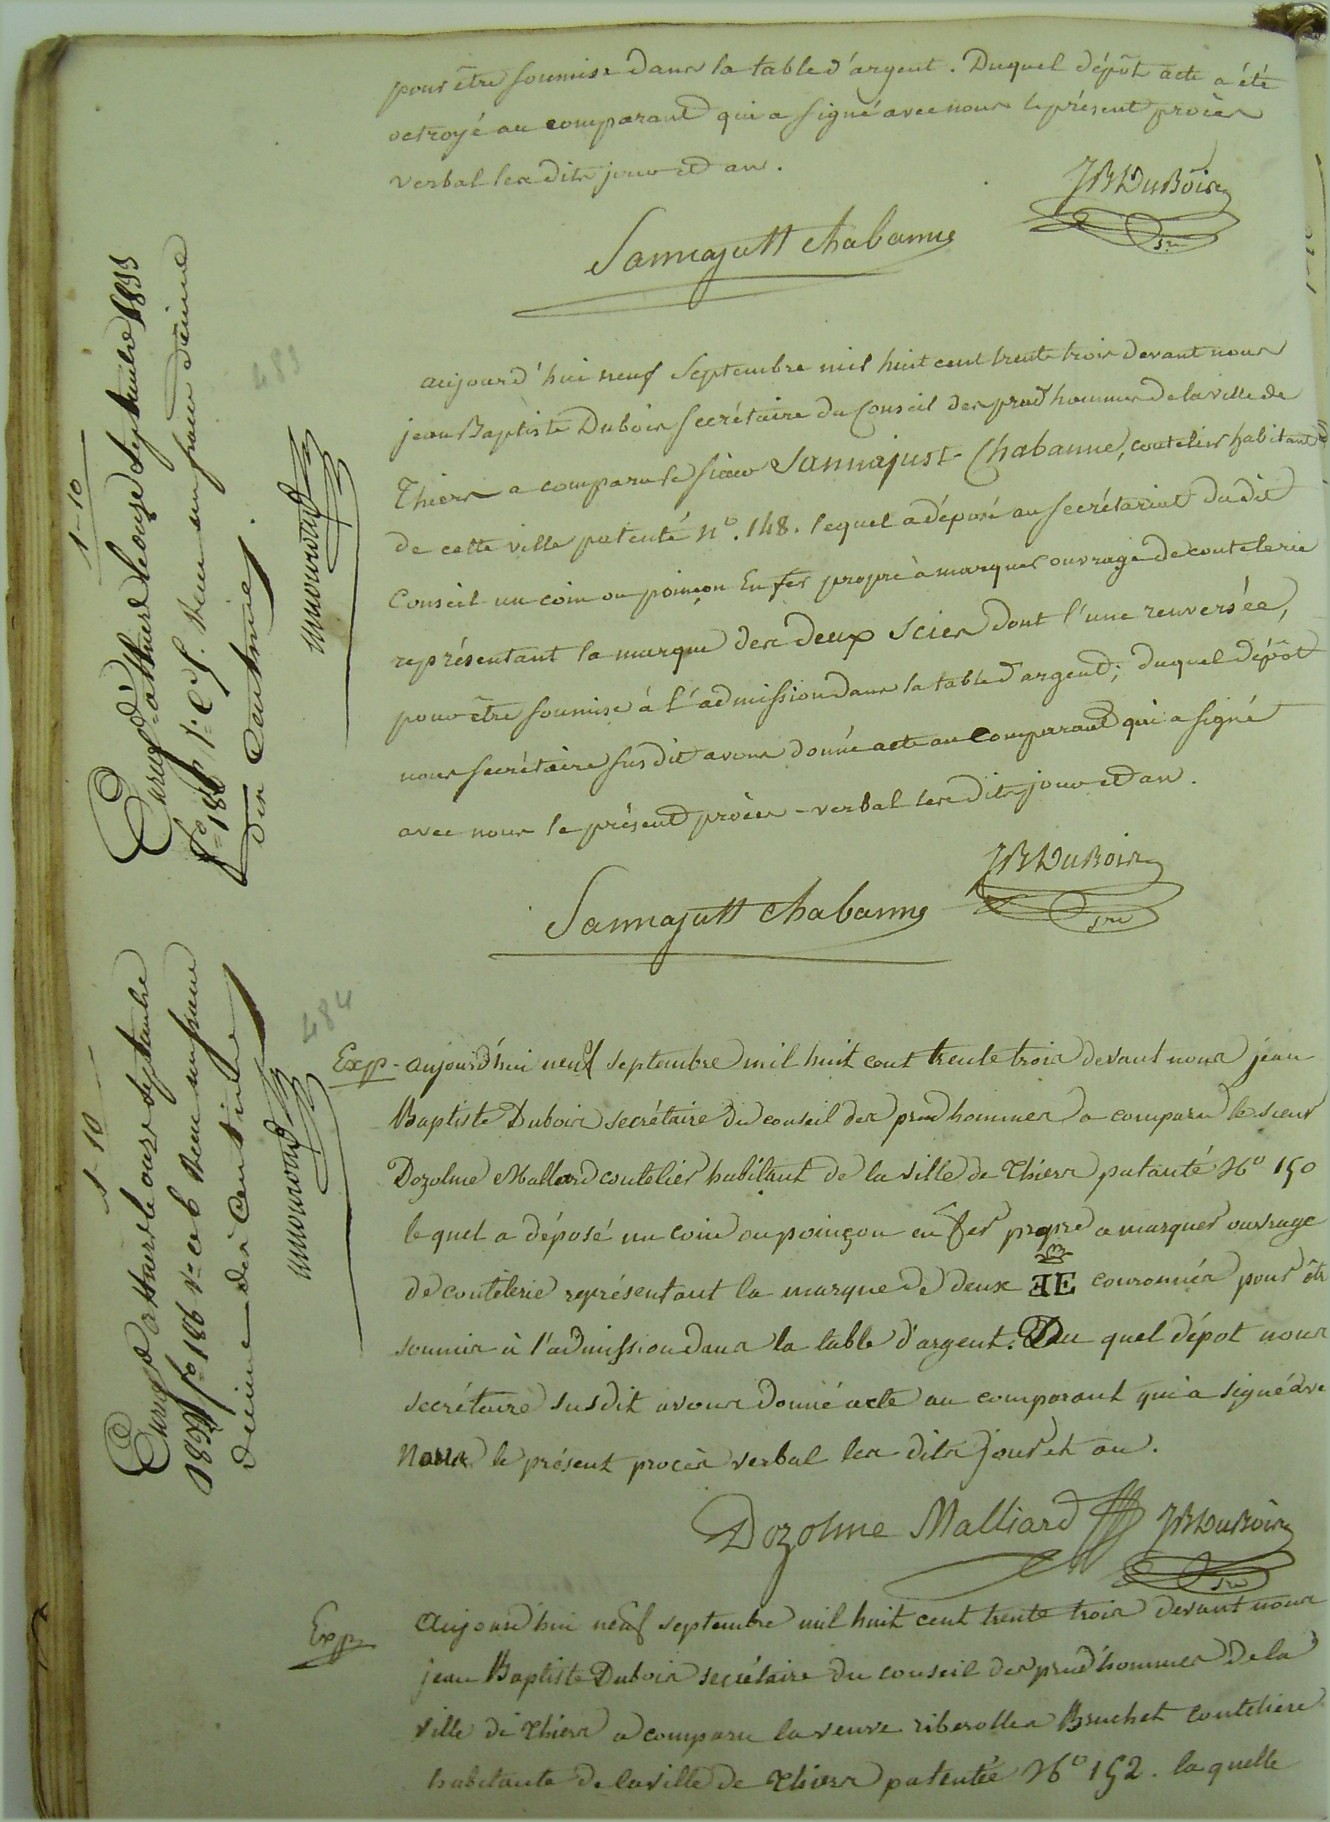 pour être soumise dans la table d'argent. Duquel dépôt acte a été
octroyé au comparant qui a signé avec nous le présent procès
verbal les dits jour et an.
JB DuBois
Sannajust chabanne
sre
483
1-10
Enregé à thiers le onze septembre 1833
fo 186 Vo C 5. Reçu un franc décime
dix centimes.
aujourd'hui neuf Septembre mil huit cent trente trois devant nous
jean Baptiste Dubois secrétaire du Conseil des prud'hommes de la ville de
Thiers a comparu le sieur Sannajust-Chabanne, coutelier habitant
de cette ville patenté No. 148. lequel a déposé au secrétariat du dit
Conseil un coin ou poinçon En fer propre à marquer ouvrage de coutelerie
représentant la marque des deux Scies dont l'une renversée,
pour être soumise à l'admission dans la table d'argent; duquel dépôt
nous secrétaire susdit avons donné acte au comparant qui a signé
avec nous le présent procès-verbal les dits jour et an.
JB DuBois
Sannajust chabanne
sre
484
1-10
Enregé à thiers le onze septembre
1833 fo 186 Vo C 6 Reçu un franc
décime dix centimes
Exp- aujourd'hui neuf septembre mil huit cent trente trois devant nous jean
Baptiste Dubois secrétaire du conseil des prud hommes a comparu le sieur
Dozolme Mallard coutelier habitant de la ville de Thiers patanté No 150
lequel a déposé un coin ou poinçon en fer propre a marquer ouvrage
de coutelerie représentant la marque de deux ƎE couronnés pour êtr
soumis à l'admission dans la table d'argent. Du quel dépot nous
secrétaire susdit avons donné acte au comparant qui a signé ave
Nous le présent procès verbal les dits jour et an.
Dozolme Malliard JB DuBois
sre
Exp. Aujourd'hui neuf septembre mil huit cent trente trois devant nous
jean Baptiste Dubois secrétaire du conseil des prud'hommes de la
ville de Thiers a comparu la veuve riberolles Bruchet coutelière
habitante de la ville de Thiers patentée No 152. la quelle